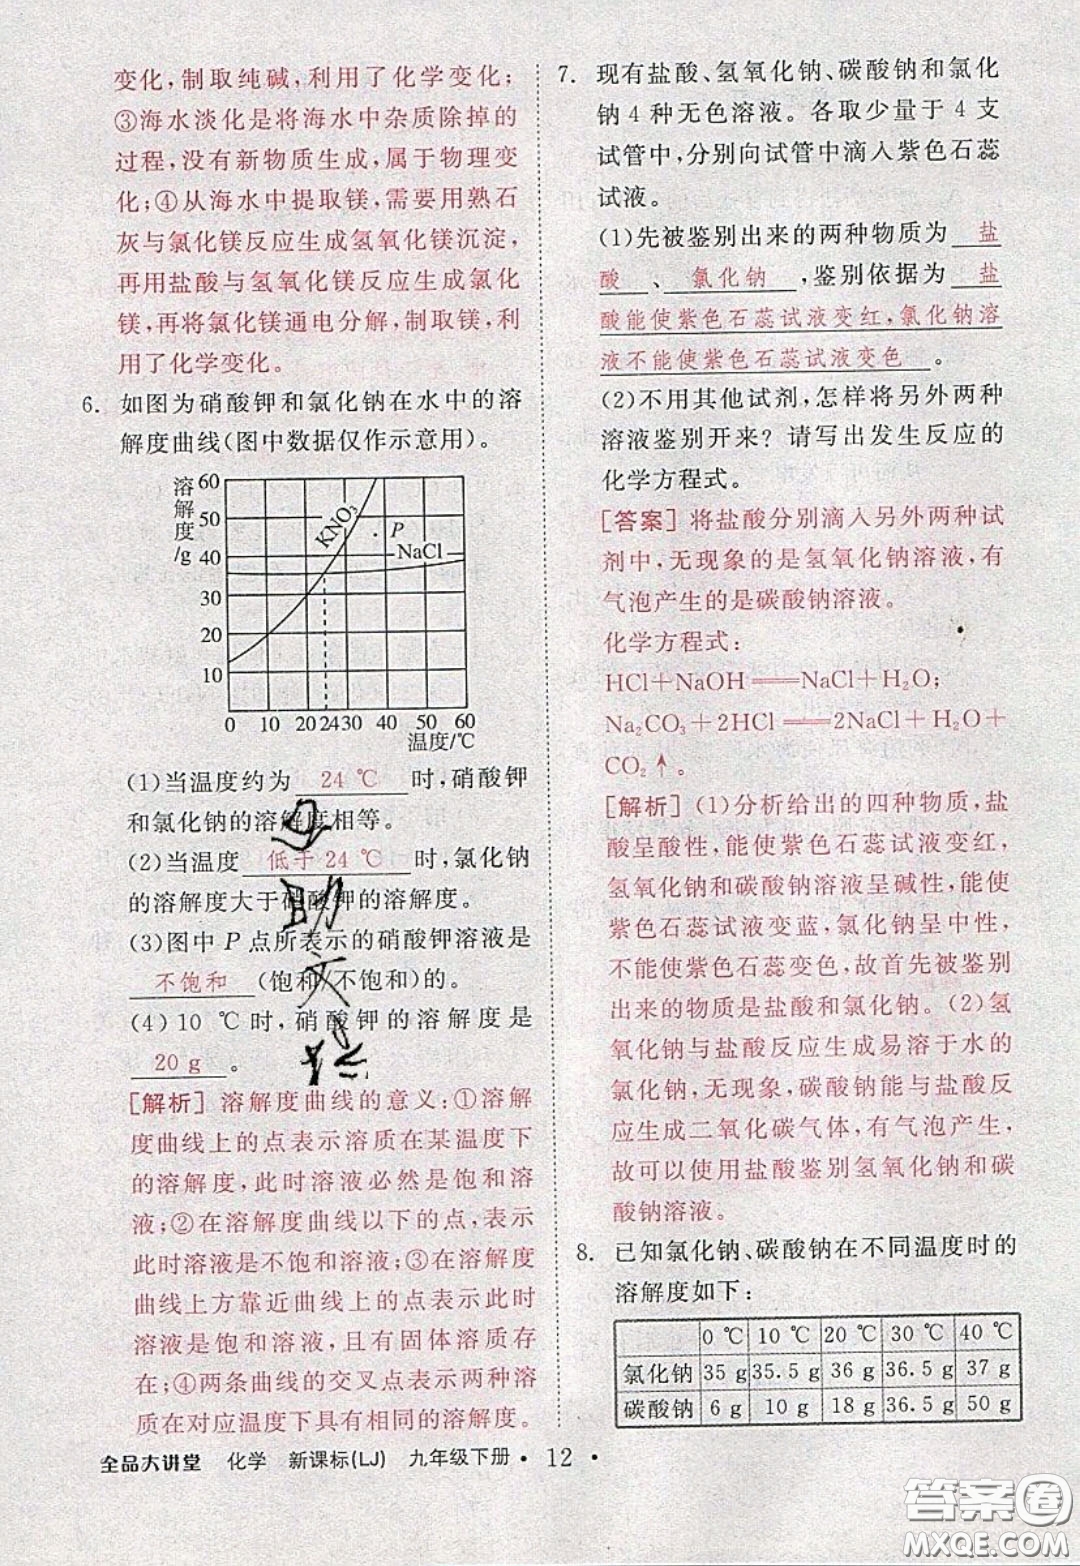 变化,制取纯碱,利用了化学变化;
③海水淡化是将海水中杂质除掉的
过程,没有新物质生成,属于物理变
化;④从海水中提取镁,需要用熟石
灰与氯化镁反应生成氢氧化镁沉淀,
再用盐酸与氢氧化镁反应生成氯化
镁,再将氯化镁通电分解,制取镁,利
用了化学变化。
6. 如图为硝酸钾和氯化钠在水中的溶
解度曲线(图中数据仅作示意用)。
溶解度/g
60
50
40
30
20
10
KNO₃
P
NaCl
0 10 20 24 30 40 50 60
温度/℃
(1)当温度约为 24 ℃ 时,硝酸钾
和氯化钠的溶解度相等。
(2)当温度 低于 24 ℃ 时,氯化钠
的溶解度大于硝酸钾的溶解度。
(3)图中 P 点所表示的硝酸钾溶液是
不饱和 (饱和/不饱和)的。
(4) 10 ℃时,硝酸钾的溶解度是
20 g 。
[解析] 溶解度曲线的意义:①溶解
度曲线上的点表示溶质在某温度下
的溶解度,此时溶液必然是饱和溶
液;②在溶解度曲线以下的点,表示
此时溶液是不饱和溶液;③在溶解度
曲线上方靠近曲线上的点表示此时
溶液是饱和溶液,且有固体溶质存
在;④两条曲线的交叉点表示两种溶
质在对应温度下具有相同的溶解度。
7. 现有盐酸、氢氧化钠、碳酸钠和氯化
钠 4 种无色溶液。各取少量于 4 支
试管中,分别向试管中滴入紫色石蕊
试液。
(1)先被鉴别出来的两种物质为 盐
酸 、 氯化钠 ,鉴别依据为 盐
酸能使紫色石蕊试液变红,氯化钠溶
液不能使紫色石蕊试液变色 。
(2)不用其他试剂,怎样将另外两种
溶液鉴别开来? 请写出发生反应的
化学方程式。
[答案] 将盐酸分别滴入另外两种试
剂中,无现象的是氢氧化钠溶液,有
气泡产生的是碳酸钠溶液。
化学方程式:
HCl+NaOH══NaCl+H₂O;
Na₂CO₃+2HCl══2NaCl+H₂O+
CO₂↑。
[解析] (1)分析给出的四种物质,盐
酸呈酸性,能使紫色石蕊试液变红,
氢氧化钠和碳酸钠溶液呈碱性,能使
紫色石蕊试液变蓝,氯化钠呈中性,
不能使紫色石蕊变色,故首先被鉴别
出来的物质是盐酸和氯化钠。(2)氢
氧化钠与盐酸反应生成易溶于水的
氯化钠,无现象,碳酸钠能与盐酸反
应生成二氧化碳气体,有气泡产生,
故可以使用盐酸鉴别氢氧化钠和碳
酸钠溶液。
8. 已知氯化钠、碳酸钠在不同温度时的
溶解度如下:
0 ℃ 10 ℃ 20 ℃ 30 ℃ 40 ℃
氯化钠 35 g 35.5 g 36 g 36.5 g 37 g
碳酸钠 6 g 10 g 18 g 36.5 g 50 g
全品大讲堂 化学 新课标(LJ) 九年级下册 • 12 •
答案圈
MXQE.COM